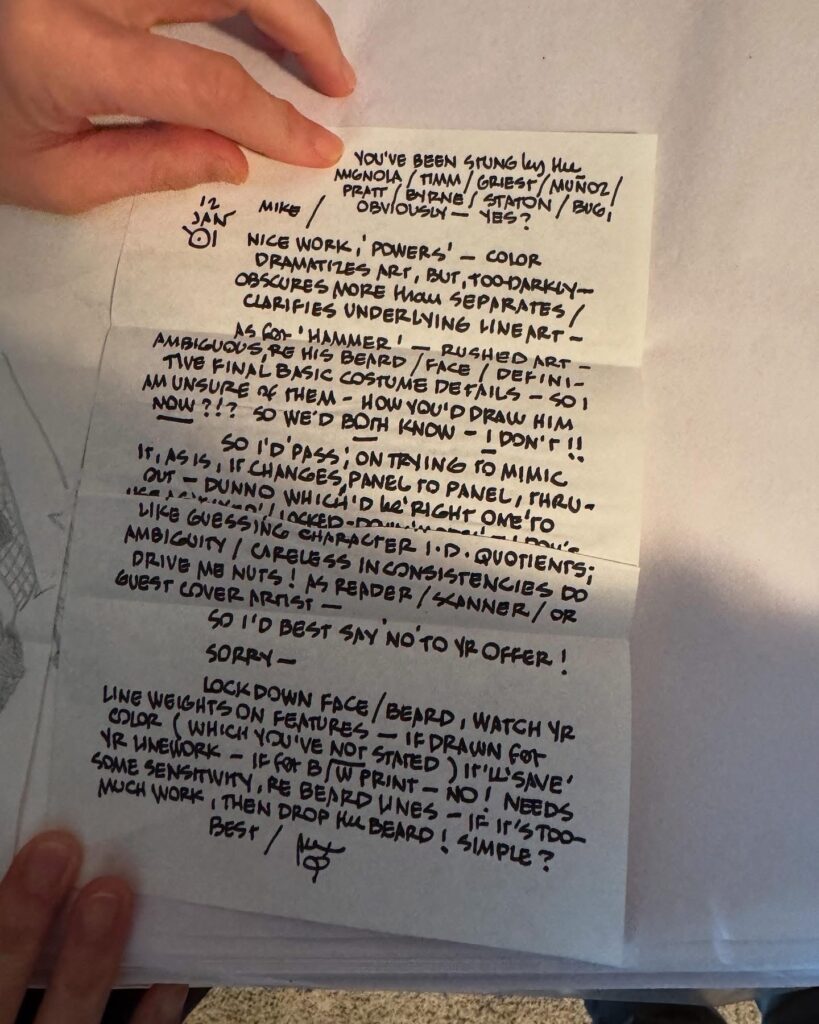 YOU'VE BEEN STUNG by the
MIGNOLA / TIMM / GRIEST / MUÑOZ /
PRATT / BYRNE / STATON / BUG,
OBVIOUSLY — YES?
12
JAN
01
MIKE /
NICE WORK, 'POWERS' — COLOR
DRAMATIZES ART, BUT, TOO-DARKLY—
OBSCURES MORE than SEPARATES /
CLARIFIES UNDERLYING LINE ART —
AS for 'HAMMER' — RUSHED ART —
AMBIGUOUS, RE HIS BEARD / FACE / DEFINI-
TIVE FINAL BASIC COSTUME DETAILS — SO I
AM UNSURE of THEM — HOW YOU'D DRAW HIM
NOW ?!? SO WE'D BOTH KNOW — I DON'T !!
SO I'D 'PASS', ON TRYING TO MIMIC
IT, AS IS, IT CHANGES, PANEL TO PANEL, THRU-
OUT — DUNNO WHICH'D be 'RIGHT ONE' TO
LIKE GUESSING CHARACTER I.D. QUOTIENTS;
AMBIGUITY / CARELESS INCONSISTENCIES DO
DRIVE ME NUTS! AS READER / SCANNER / OR
GUEST COVER ARTIST —
SO I'D BEST SAY 'NO' TO YR OFFER!
SORRY —
LOCK DOWN FACE / BEARD, WATCH YR
LINE WEIGHTS ON FEATURES — IF DRAWN for
COLOR (WHICH YOU'VE NOT STATED) IT'LL 'SAVE'
YR LINEWORK — IF for B/W PRINT — NO! NEEDS
SOME SENSITIVITY, RE BEARD LINES — IF IT'S TOO-
MUCH WORK, THEN DROP the BEARD! SIMPLE?
BEST /